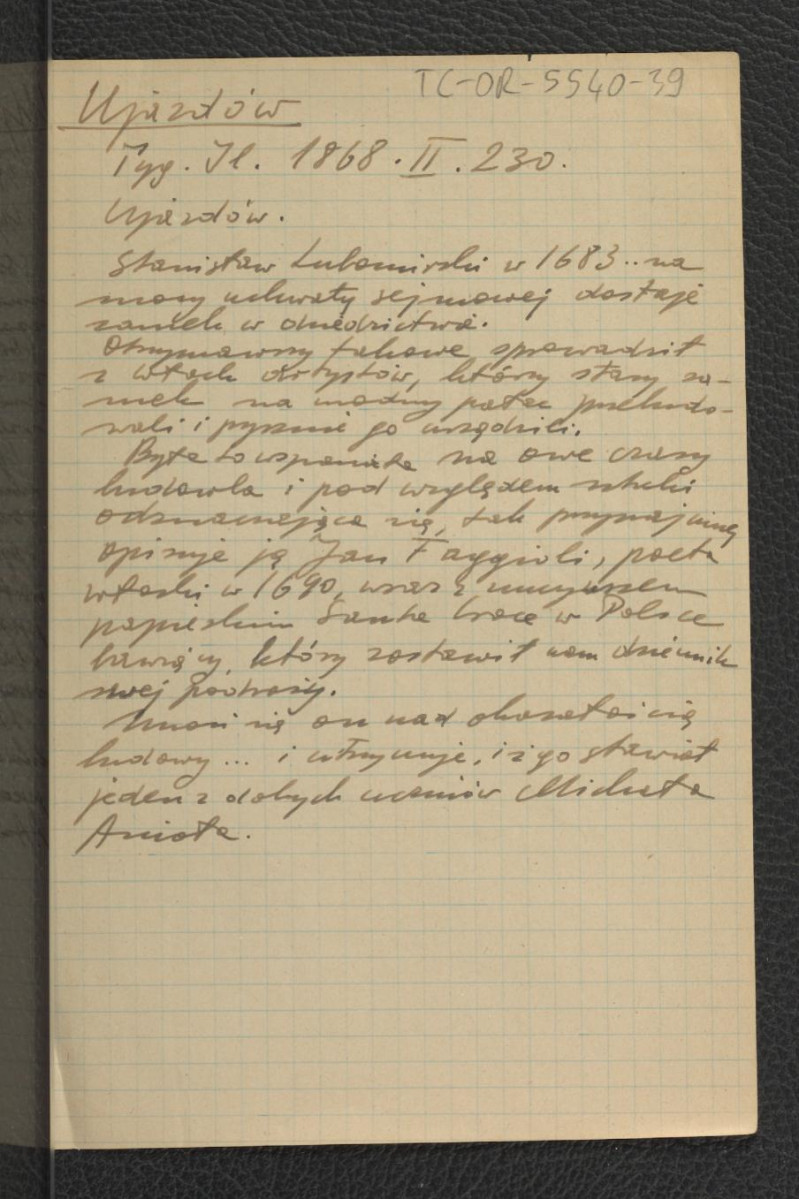 TC-OR-5540-39
Ujazdów
Tyg. Il. 1868. II. 230.
Ujazdów.
Stanisław Lubomirski w 1683.. na
mocy uchwały sejmowej dostaje
zamek w dziedzictwo.
Otrzymawszy takowe, sprowadził
z Włoch artystów, którzy stary za-
mek na modny pałac przebudo-
wali i pysznie go urządzili.
Była to wspaniała na owe czasy
budowla i pod względem sztuki
odznaczająca się, tak przynajmniej
opisuje ją Jan Faggioli, poeta
włoski w 1690, wraz z nuncyuszem
papieskim Santa Croce w Polsce
bawiący, który zostawił nam dziennik
swej podróży.
Unosi się on nad okazałością
budowy... i utrzymuje, iż go stawiał
jeden z dobrych uczniów Michała
Anioła.